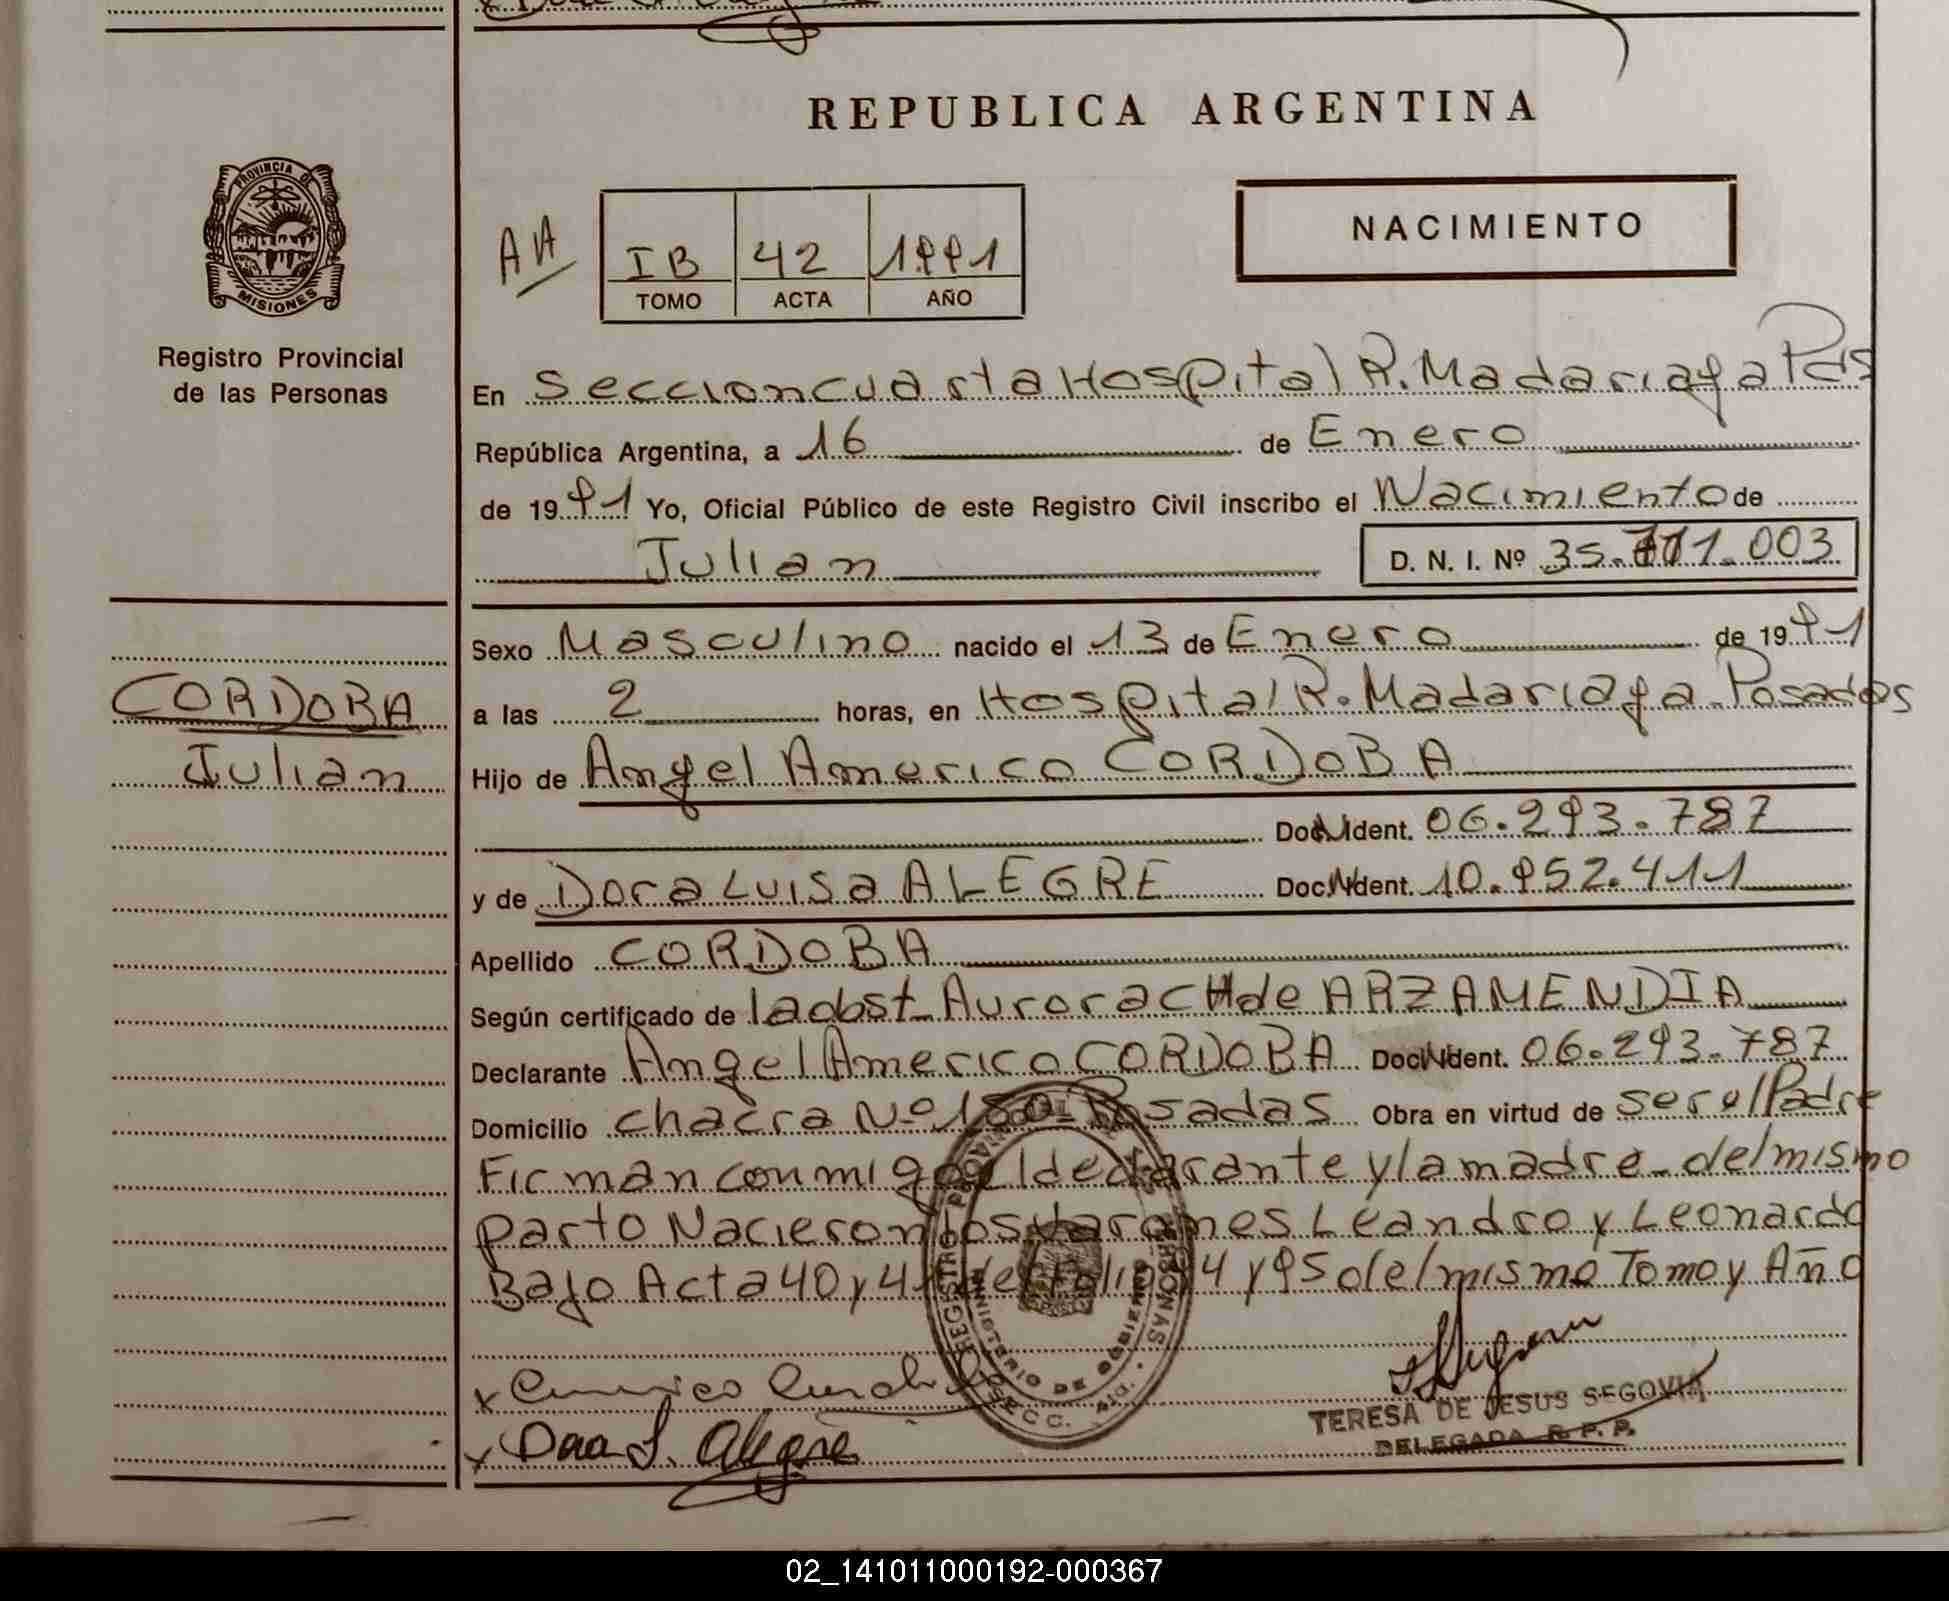 REPUBLICA ARGENTINA
PROVINCIA DE
MISIONES
Registro Provincial
de las Personas
AA
IB 42 1991
TOMO ACTA AÑO
NACIMIENTO
En Seccion cuarta Hospital R. Madariaga Pdas
República Argentina, a 16 de Enero
de 1991 Yo, Oficial Público de este Registro Civil inscribo el Nacimiento de
Julian D. N. I. Nº 35. 003
Sexo Masculino nacido el 13 de Enero de 1991
a las 2 horas, en Hospital R. Madariaga. Posadas
CORDOBA
Julian
Hijo de Angel Americo CORDOBA
Doc. Ident. 06.293.787
y de Dora Luisa ALEGRE Doc. Ident. 10.952.411
Apellido CORDOBA
Según certificado de la obst. Aurora CH de ARZAMENDIA
Declarante Angel Americo CORDOBA Doc. Ident. 06.293.787
Domicilio chacra Nº 180 - Posadas Obra en virtud de ser el Padre
Firman conmigo el declarante y la madre - del mismo
parto Nacieron los varones Leandro y Leonardo
Bajo Acta 40 y 41 del Folio 94 y 95 del mismo Tomo y Año
x Americo Cordoba
x Dora L. Alegre
REGISTRO PROVINCIAL PERSONAS
MINISTERIO DE GOBIERNO
SECC.
TERESA DE JESUS SEGOVIA
DELEGADA R. P. P.
02_141011000192-000367